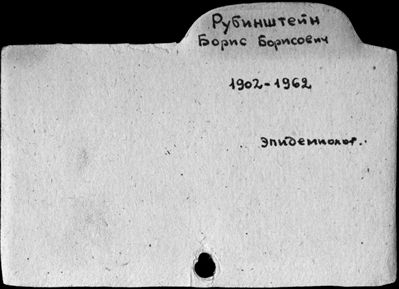 Рубинштейн
Борис Борисович
1902-1962
Эпидемиолог.